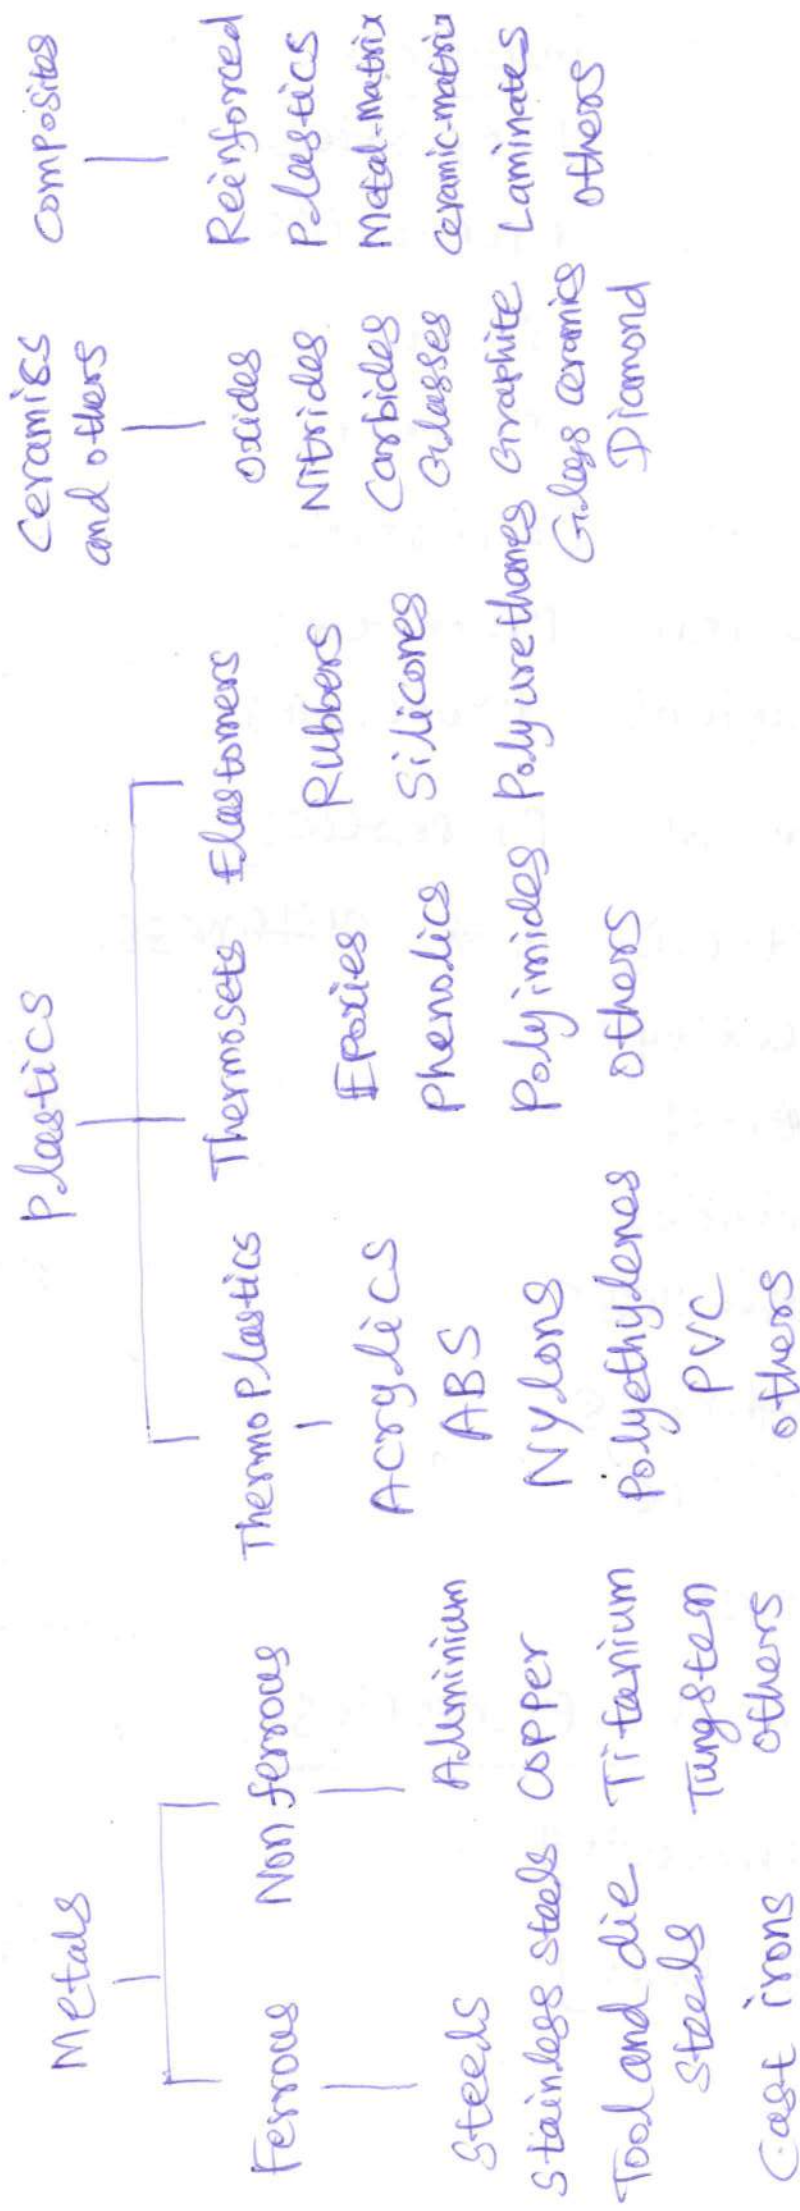 Metals
Ferrous
Steels
Stainless steels
Tool and die
steels
Cast irons
Non ferrous
Aluminium
Copper
Titanium
Tungsten
others
Plastics
Thermo Plastics
Acrylics
ABS
Nylons
Polyethylenes
PVC
others
Thermosets
Epoxies
Phenolics
Polyimides
others
Elastomers
Rubbers
Silicones
Polyurethanes
Ceramics
and others
Oxides
Nitrides
Carbides
Glasses
Graphite
Glass ceramics
Diamond
Composites
Reinforced
Plastics
Metal-Matrix
Ceramic-matrix
Laminates
others